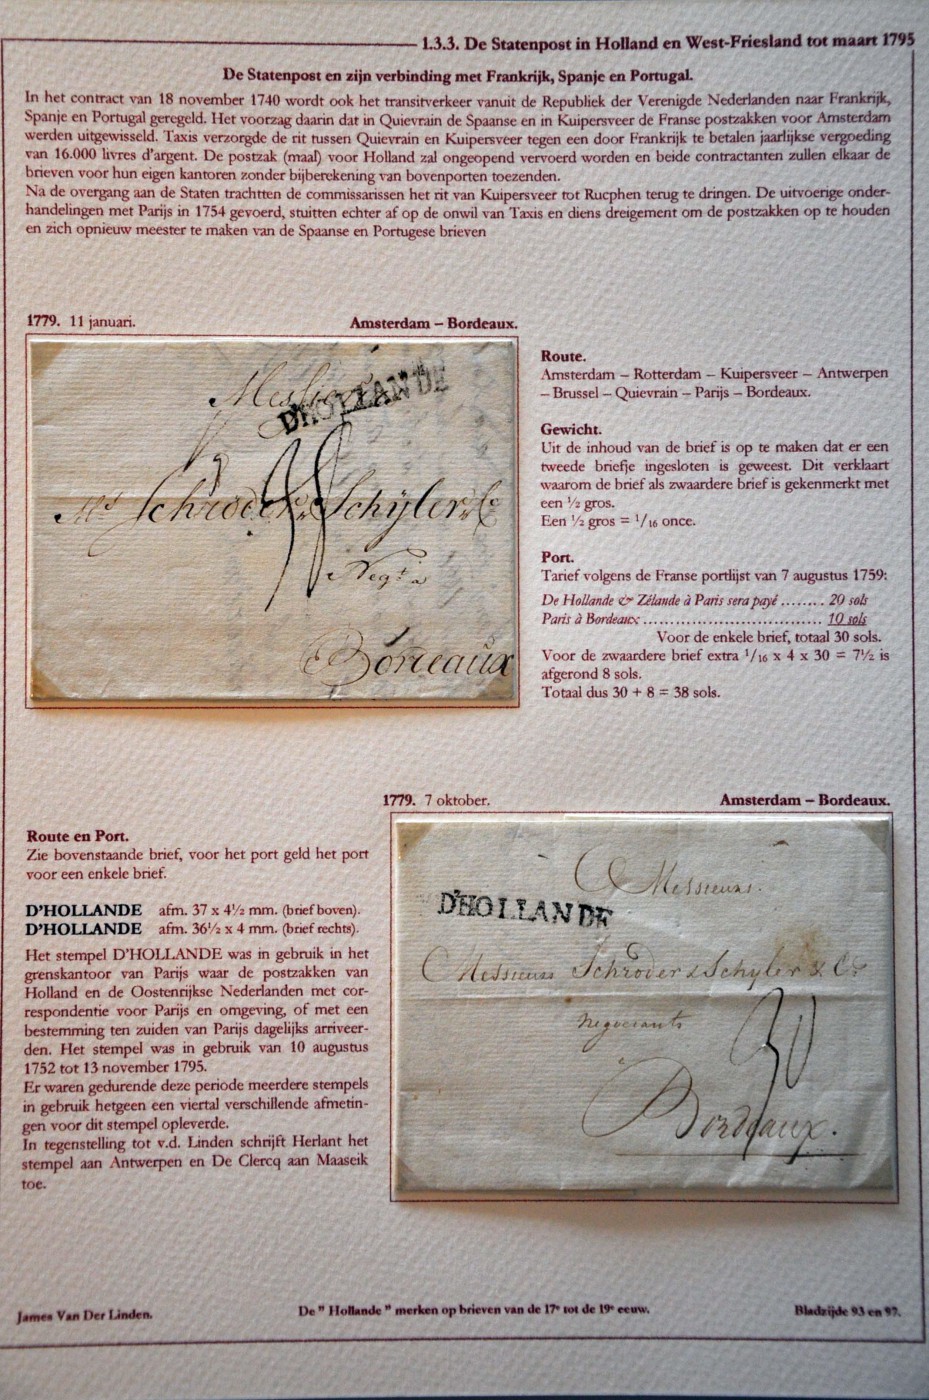 1.3.3. De Statenpost in Holland en West-Friesland tot maart 1795
De Statenpost en zijn verbinding met Frankrijk, Spanje en Portugal.
In het contract van 18 november 1740 wordt ook het transitverkeer vanuit de Republiek der Verenigde Nederlanden naar Frankrijk,
Spanje en Portugal geregeld. Het voorzag daarin dat in Quievrain de Spaanse en in Kuipersveer de Franse postzakken voor Amsterdam
werden uitgewisseld. Taxis verzorgde de rit tussen Quievrain en Kuipersveer tegen een door Frankrijk te betalen jaarlijkse vergoeding
van 16.000 livres d'argent. De postzak (maal) voor Holland zal ongeopend vervoerd worden en beide contractanten zullen elkaar de
brieven voor hun eigen kantoren zonder bijberekening van bovenporten toezenden.
Na de overgang aan de Staten trachtten de commissarissen het rit van Kuipersveer tot Rucphen terug te dringen. De uitvoerige onder-
handelingen met Parijs in 1754 gevoerd, stuitten echter af op de onwil van Taxis en diens dreigement om de postzakken op te houden
en zich opnieuw meester te maken van de Spaanse en Portugese brieven
1779. 11 januari.
Amsterdam – Bordeaux.
Messieurs
D'HOLLANDE
38
Mrs Schroder & Schÿler & Co
Negts a
Bordeaux
Route.
Amsterdam – Rotterdam – Kuipersveer – Antwerpen
– Brussel – Quievrain – Parijs – Bordeaux.
Gewicht.
Uit de inhoud van de brief is op te maken dat er een
tweede briefje ingesloten is geweest. Dit verklaart
waarom de brief als zwaardere brief is gekenmerkt met
een ½ gros.
Een ½ gros = 1/16 once.
Port.
Tarief volgens de Franse portlijst van 7 augustus 1759:
De Hollande & Zélande à Paris sera payé ........ 20 sols
Paris à Bordeaux ................................ 10 sols
Voor de enkele brief, totaal 30 sols.
Voor de zwaardere brief extra 1/16 x 4 x 30 = 7½ is
afgerond 8 sols.
Totaal dus 30 + 8 = 38 sols.
1779. 7 oktober.
Amsterdam – Bordeaux.
Route en Port.
Zie bovenstaande brief, voor het port geld het port
voor een enkele brief.
D'HOLLANDE afm. 37 x 4½ mm. (brief boven).
D'HOLLANDE afm. 36½ x 4 mm. (brief rechts).
Het stempel D'HOLLANDE was in gebruik in het
grenskantoor van Parijs waar de postzakken van
Holland en de Oostenrijkse Nederlanden met cor-
respondentie voor Parijs en omgeving, of met een
bestemming ten zuiden van Parijs dagelijks arriveer-
den. Het stempel was in gebruik van 10 augustus
1752 tot 13 november 1795.
Er waren gedurende deze periode meerdere stempels
in gebruik hetgeen een viertal verschillende afmetin-
gen voor dit stempel opleverde.
In tegenstelling tot v.d. Linden schrijft Herlant het
stempel aan Antwerpen en De Clercq aan Maaseik
toe.
Messieurs.
D'HOLLANDE
Messieurs Schroder & Schyler & Co
negociants
30
a
Bordeaux.
James Van Der Linden.
De " Hollande " merken op brieven van de 17e tot de 19e eeuw.
Bladzijde 93 en 97.